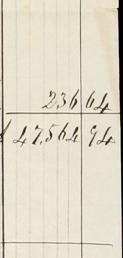 236 64
47,564 94